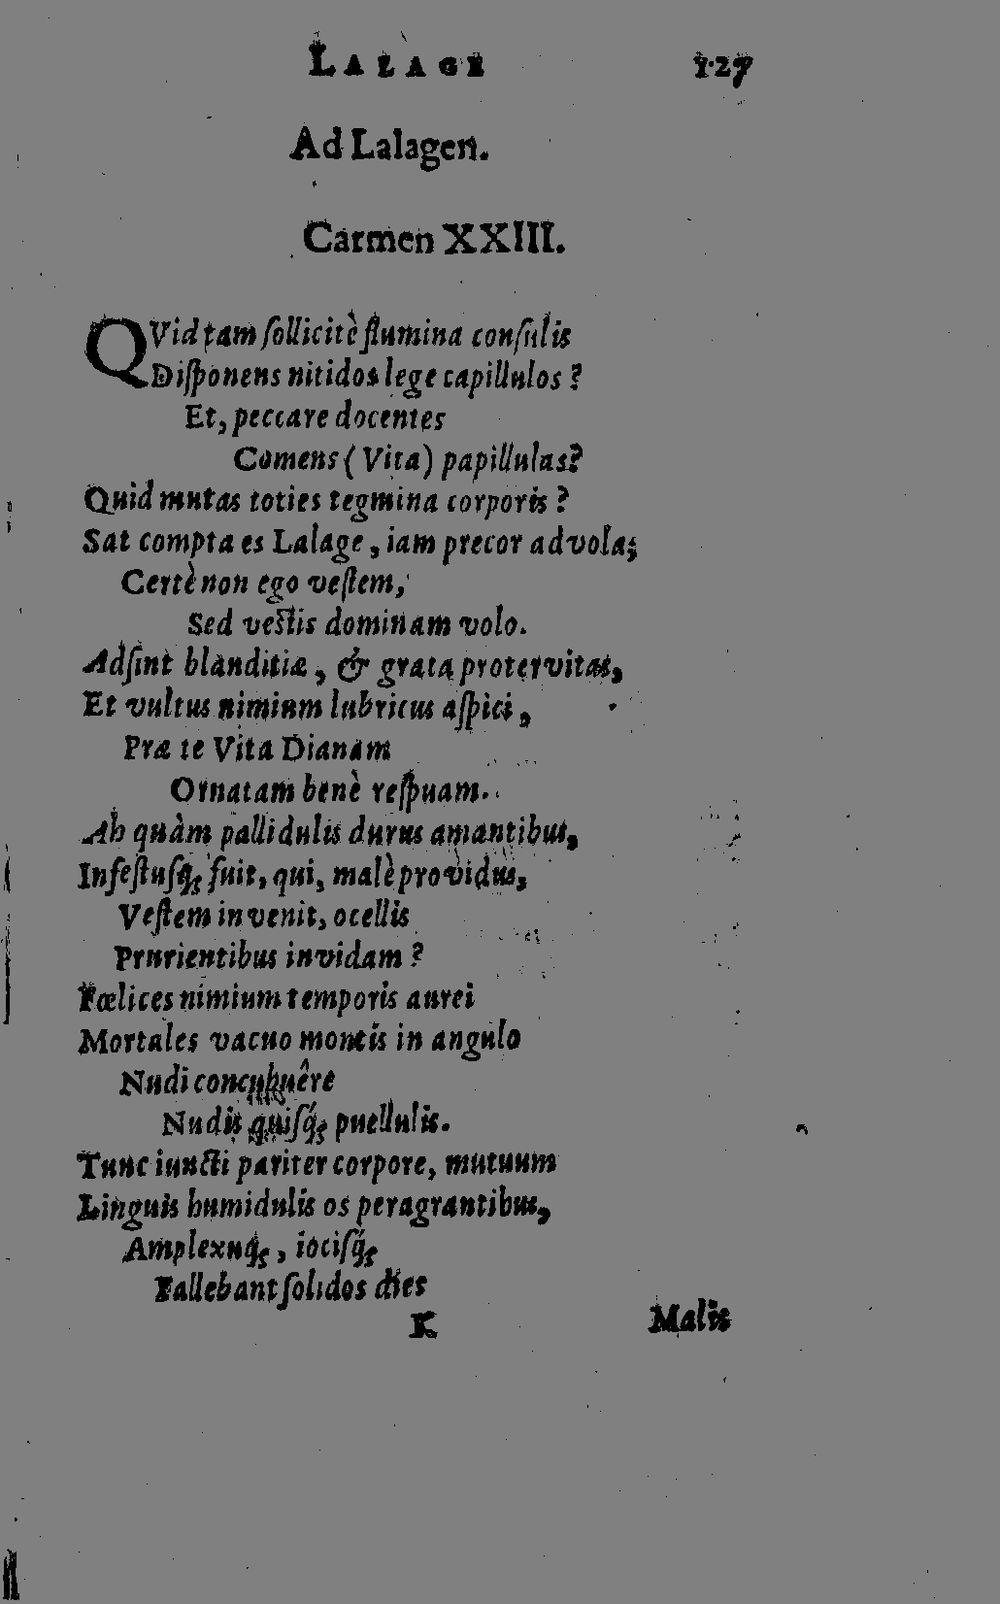 LALAGE 127
Ad Lalagen.
Carmen XXIII.
QVid tam ſollicitè flumina conſulis
Diſponens nitidos lege capillulos ?
Et, peccare docentes
Comens ( Vita ) papillulas?
Quid mutas toties tegmina corporis ?
Sat compta es Lalage , iam precor advola;
Certè non ego veſtem,
Sed veſtis dominam volo.
Adſint blanditiæ , & grata protervitas,
Et vultus nimium lubricus aſpici ,
Præ te Vita Dianam
Ornatam benè reſpuam.
Ah quàm pallidulis durus amantibus,
Infeſtuſq; fuit, qui, malè providus,
Veſtem invenit, ocellis
Prurientibus invidam ?
Fœlices nimium temporis aurei
Mortales vacuo montis in angulo
Nudi concubuêre
Nudis quiſq́; puellulis.
Tunc iuncti pariter corpore, mutuum
Linguis humidulis os peragrantibus,
Amplexuq́; , iociſq́;
Fallebant ſolidos dies
K Malis